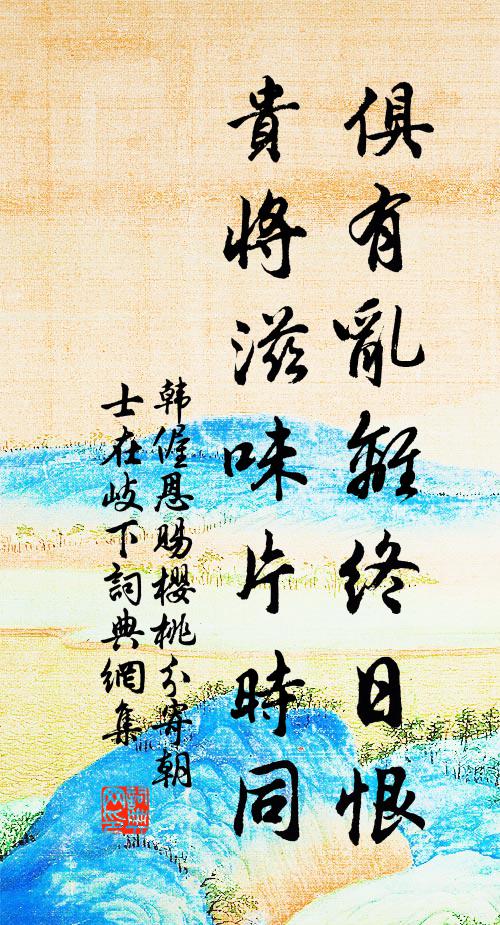 俱有亂離終日恨
貴將滋味片時同
韩偓恩賜櫻桃分寄朝
士在岐下詞典網集